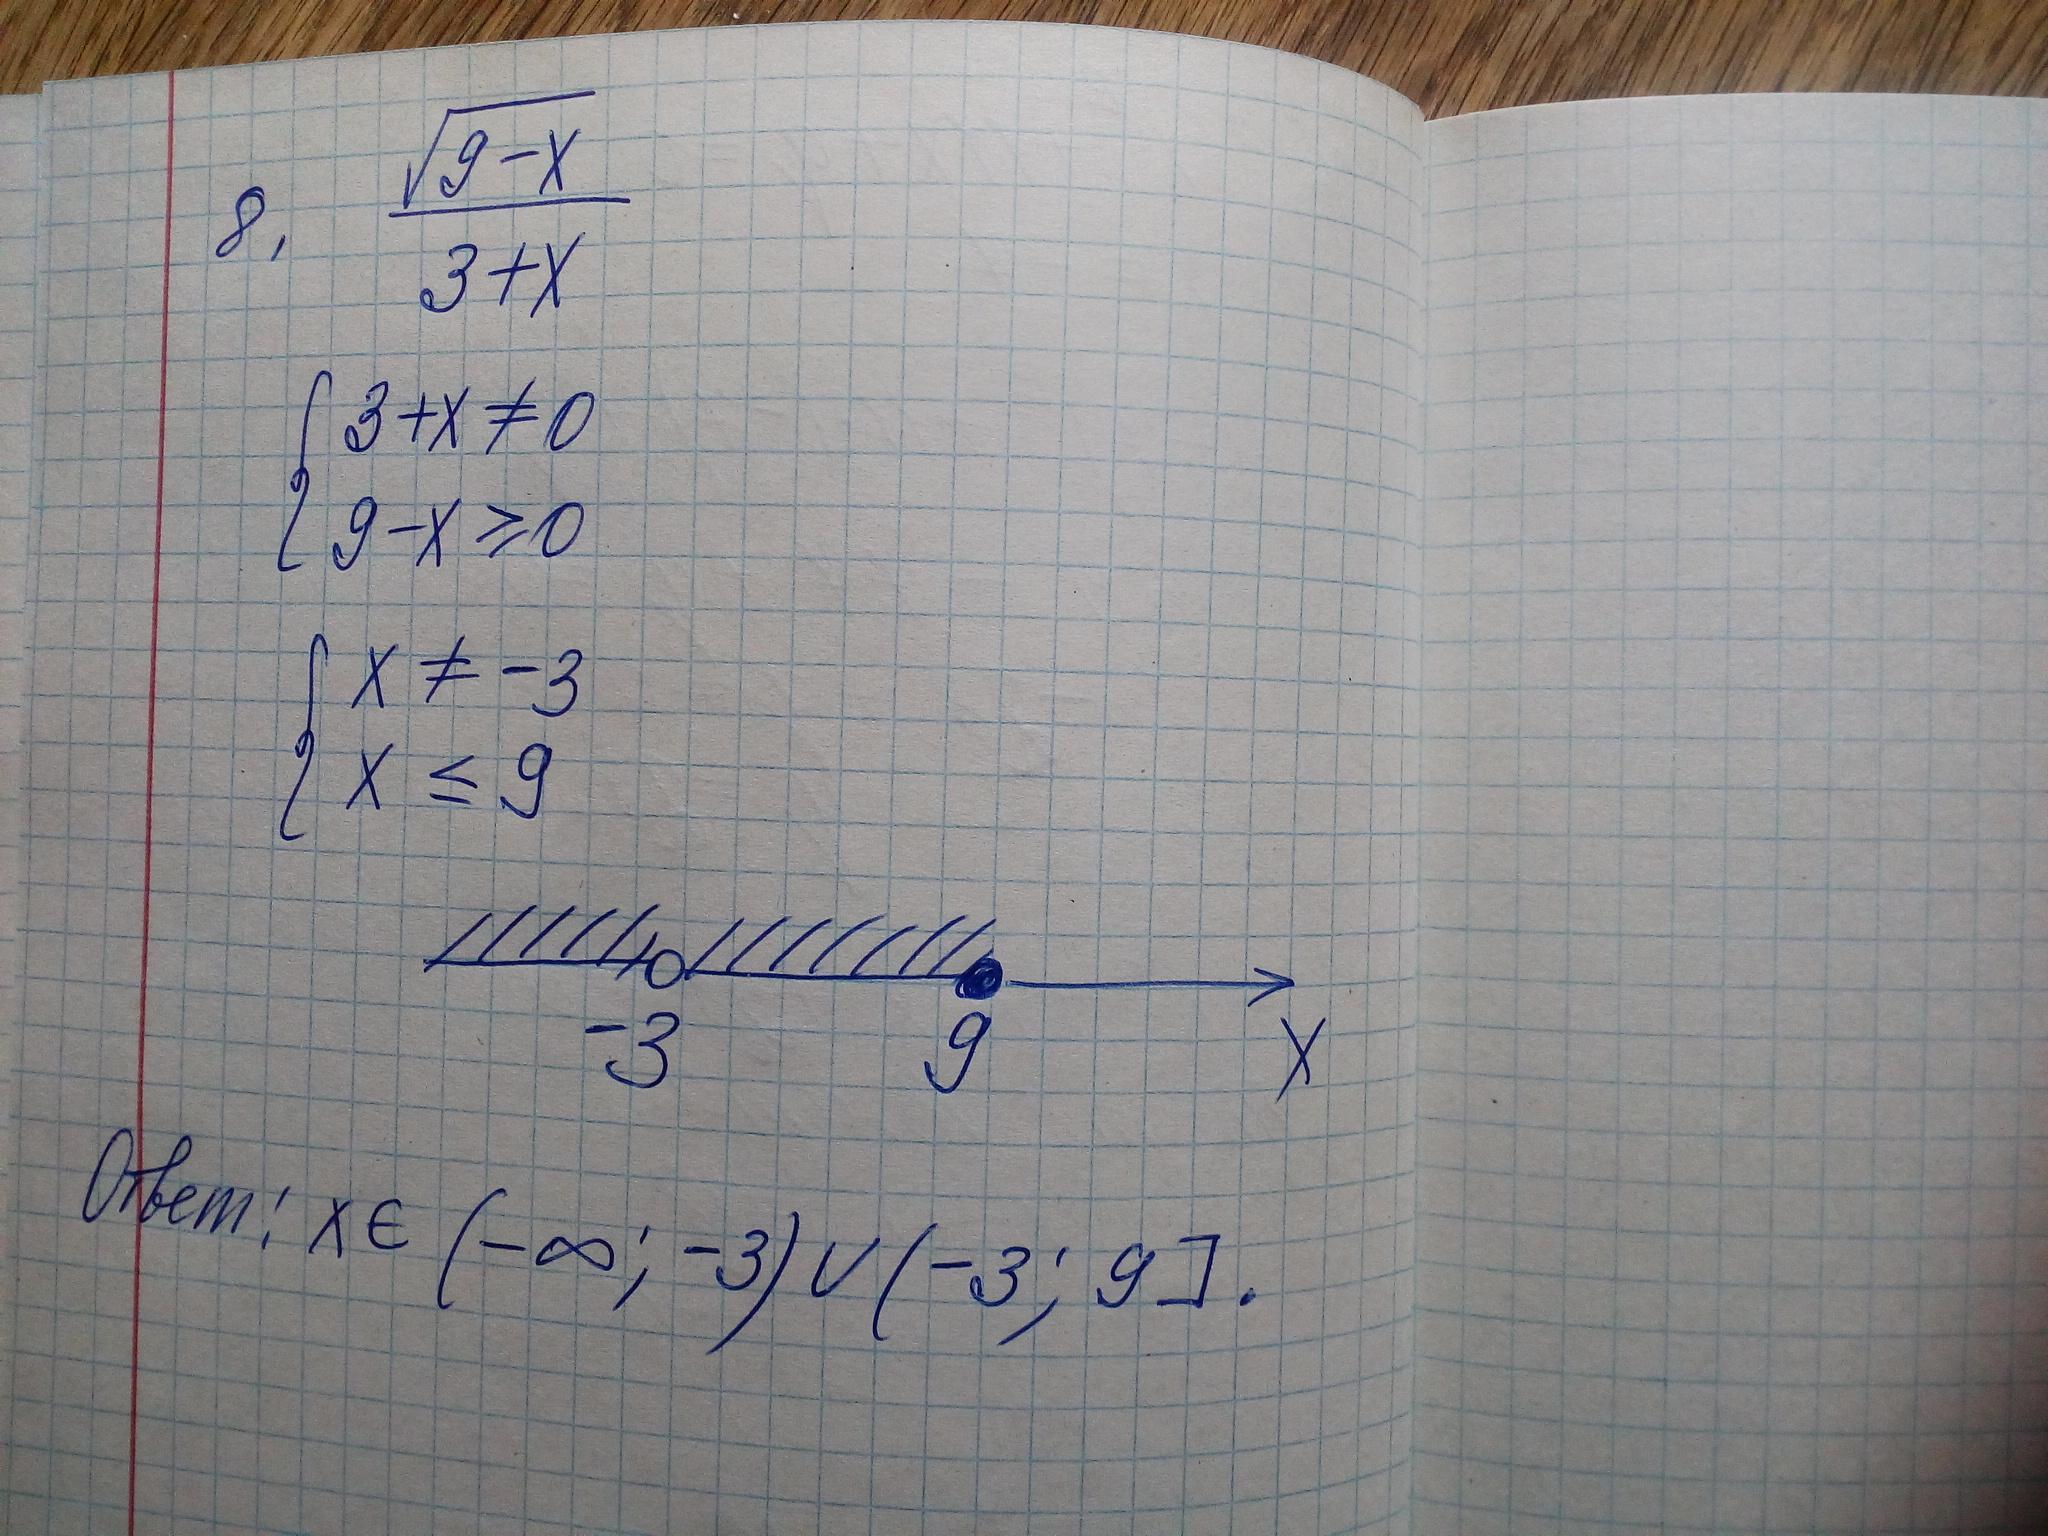 8, √9-x / 3+x
{ 3+x≠0
9-x≥0
{ x ≠ -3
x ≤ 9
-3 9 x
Ответ: x∈(-∞; -3)∪(-3; 9].